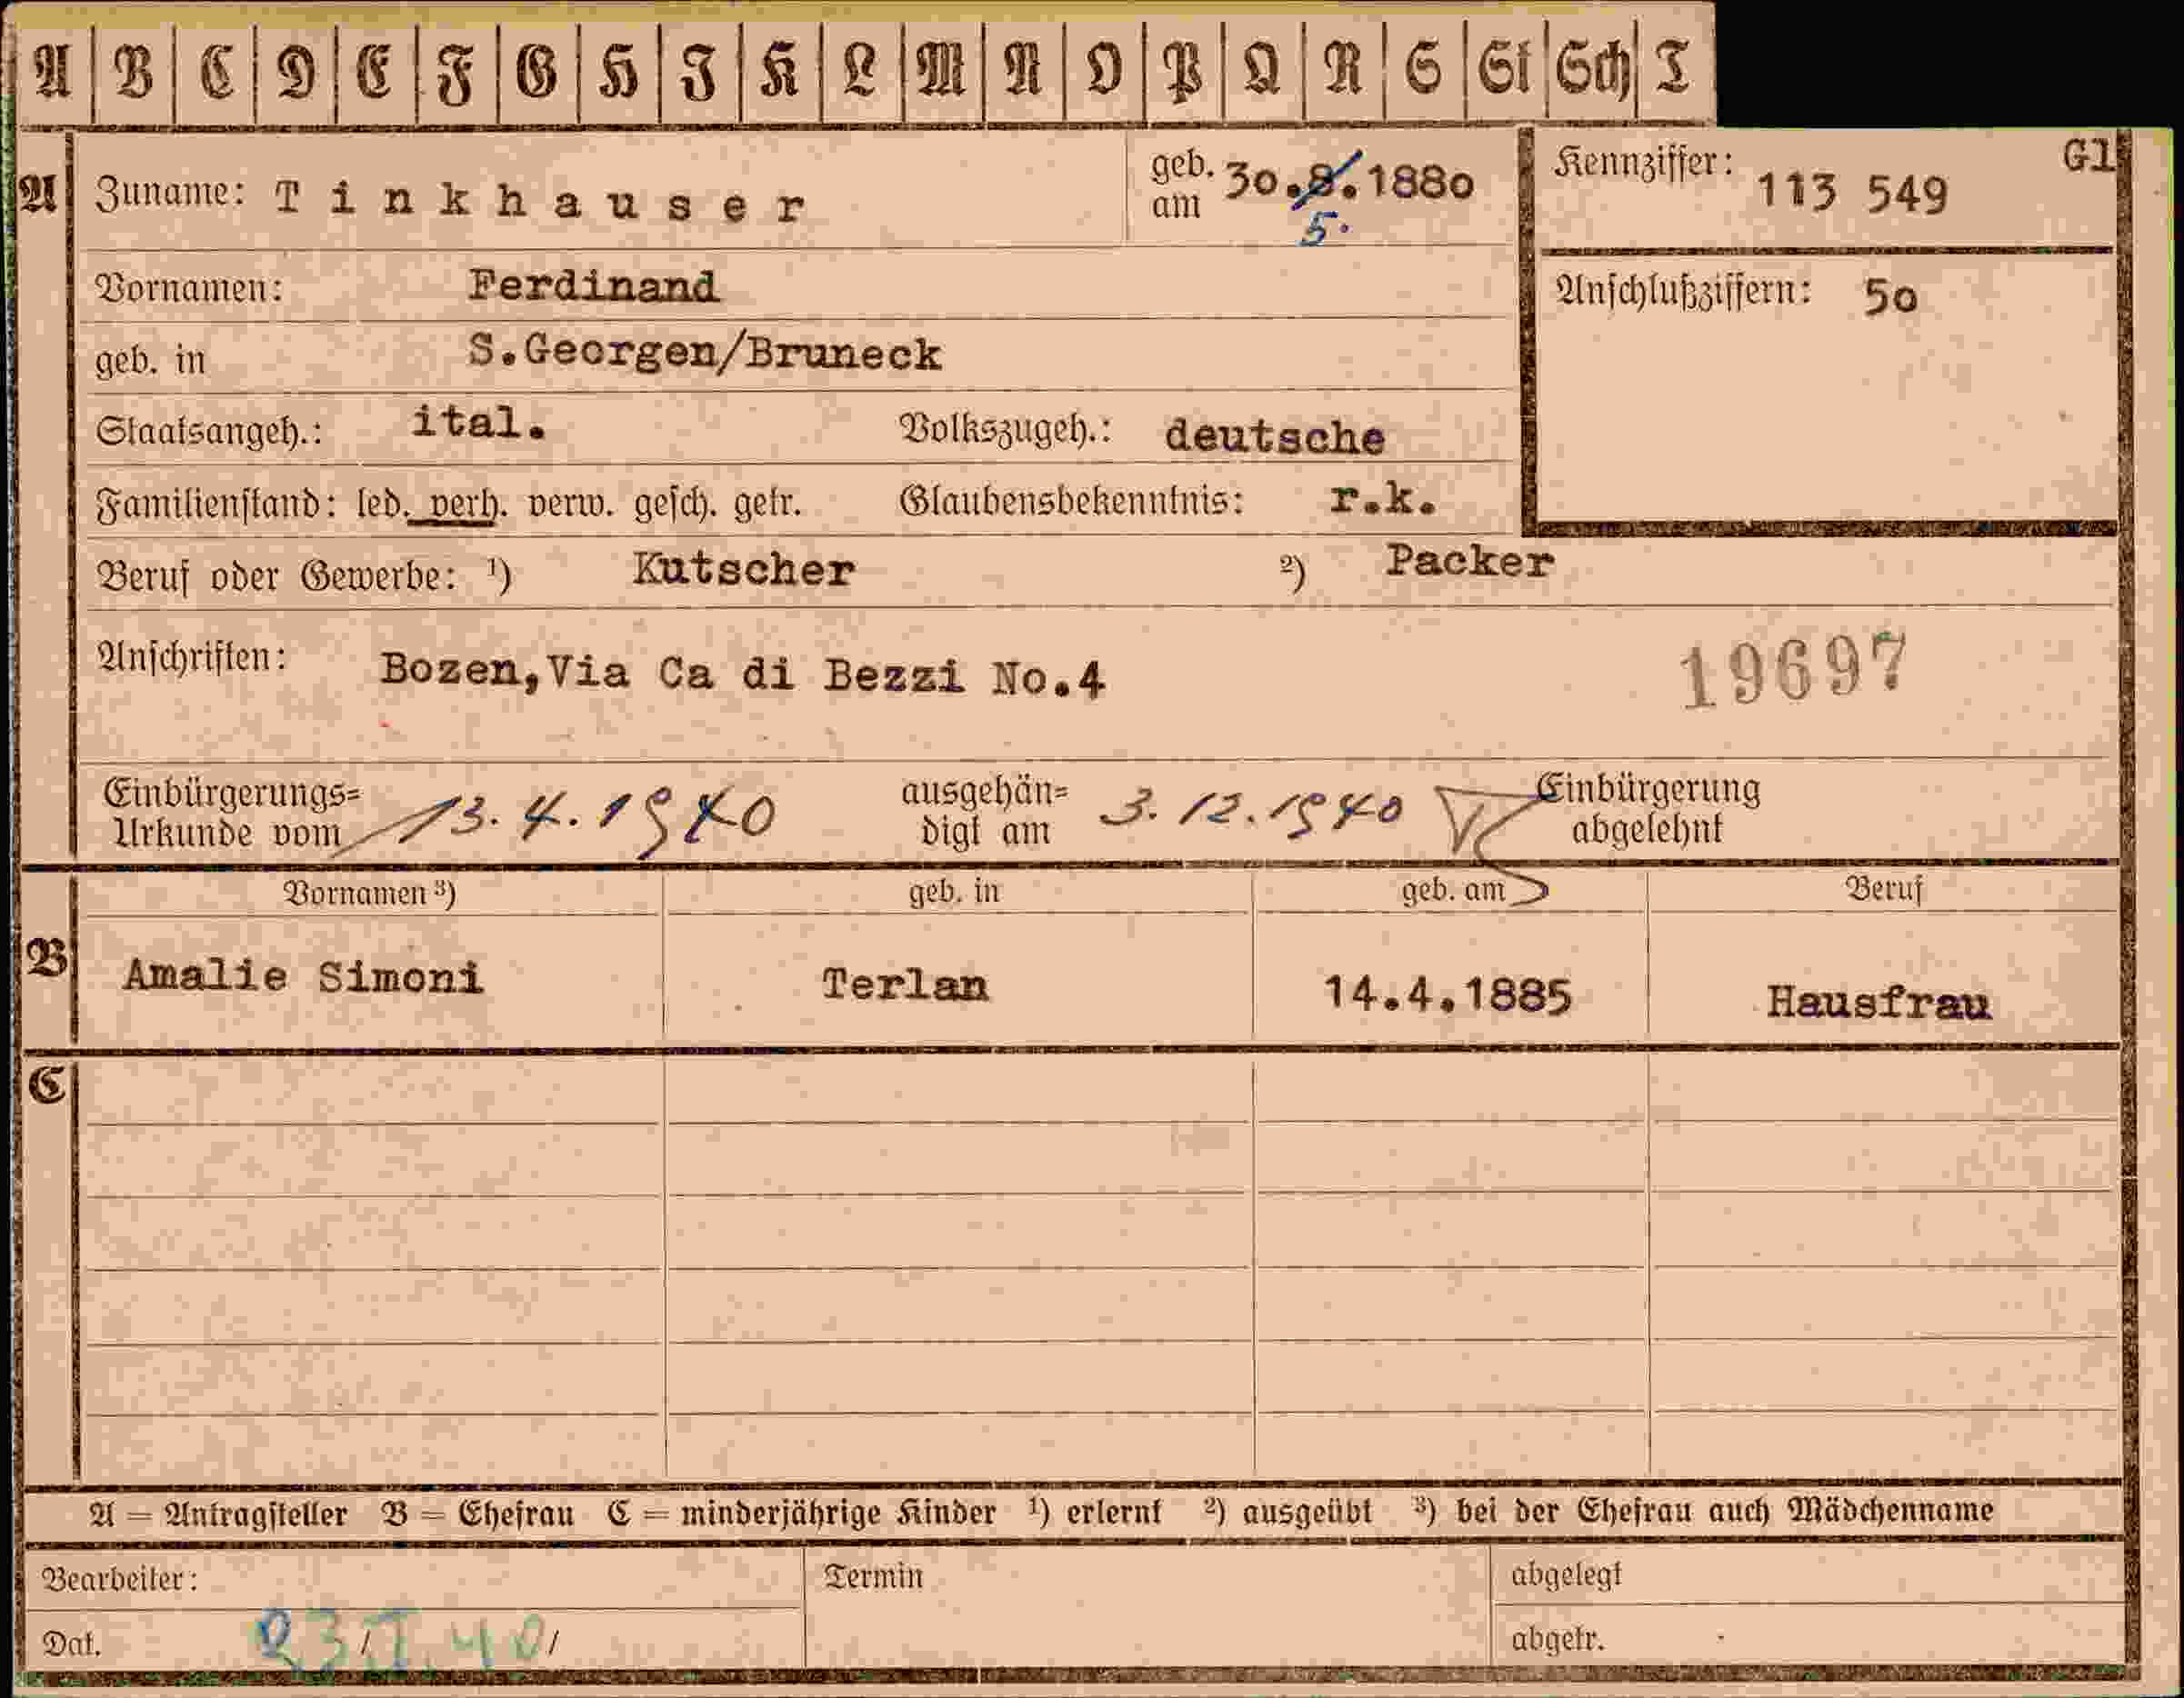 A B C D E F G H J K L M N O P Q R S St Sch T
A Zuname: Tinkhauser geb. am 30.8.1880 5. Kennziffer: 113 549 Gl
Vornamen: Ferdinand Anschlußziffern: 50
geb. in S.Georgen/Bruneck
Staatsangeh.: ital. Volkszugeh.: deutsche
Familienstand: led. verh. verw. gesch. getr. Glaubensbekenntnis: r.k.
Beruf oder Gewerbe: ¹) Kutscher ²) Packer
Anschriften: Bozen,Via Ca di Bezzi No.4 19697
Einbürgerungs= Urkunde vom 13.4.1940 ausgehän= digt am 3.12.1940 Einbürgerung abgelehnt
Vornamen ³) geb. in geb. am Beruf
B Amalie Simoni Terlan 14.4.1885 Hausfrau
C
A = Antragsteller B = Ehefrau C = minderjährige Kinder ¹) erlernt ²) ausgeübt ³) bei der Ehefrau auch Mädchenname
Bearbeiter: Termin abgelegt
Dat. 23/I.40/ abgetr.